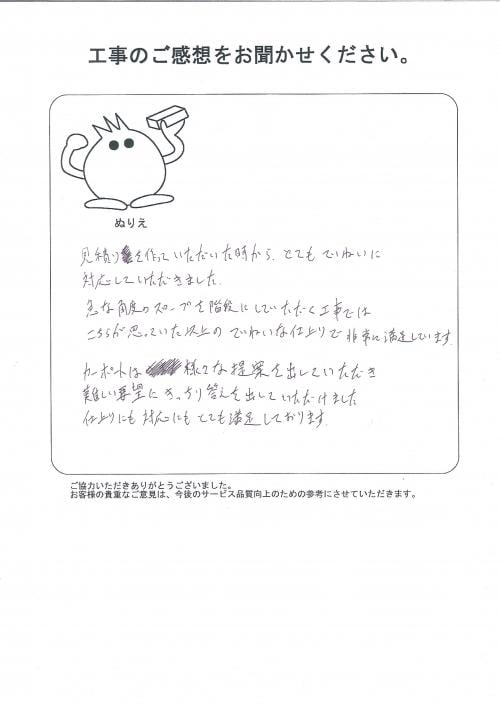 工事のご感想をお聞かせください。
ぬりえ
見積りを作っていただいた時から、とてもていねいに
対応していただきました。
急な角度のスロープを階段にしていただく工事では
こちらが思っていた以上のていねいな仕上りで非常に満足しています。
カーポートは様々な提案を出していただき
難しい要望にきっちり答えを出していただけました
仕上りにも対応にもとても満足しております。
ご協力いただきありがとうございました。
お客様の貴重なご意見は、今後のサービス品質向上のための参考にさせていただきます。